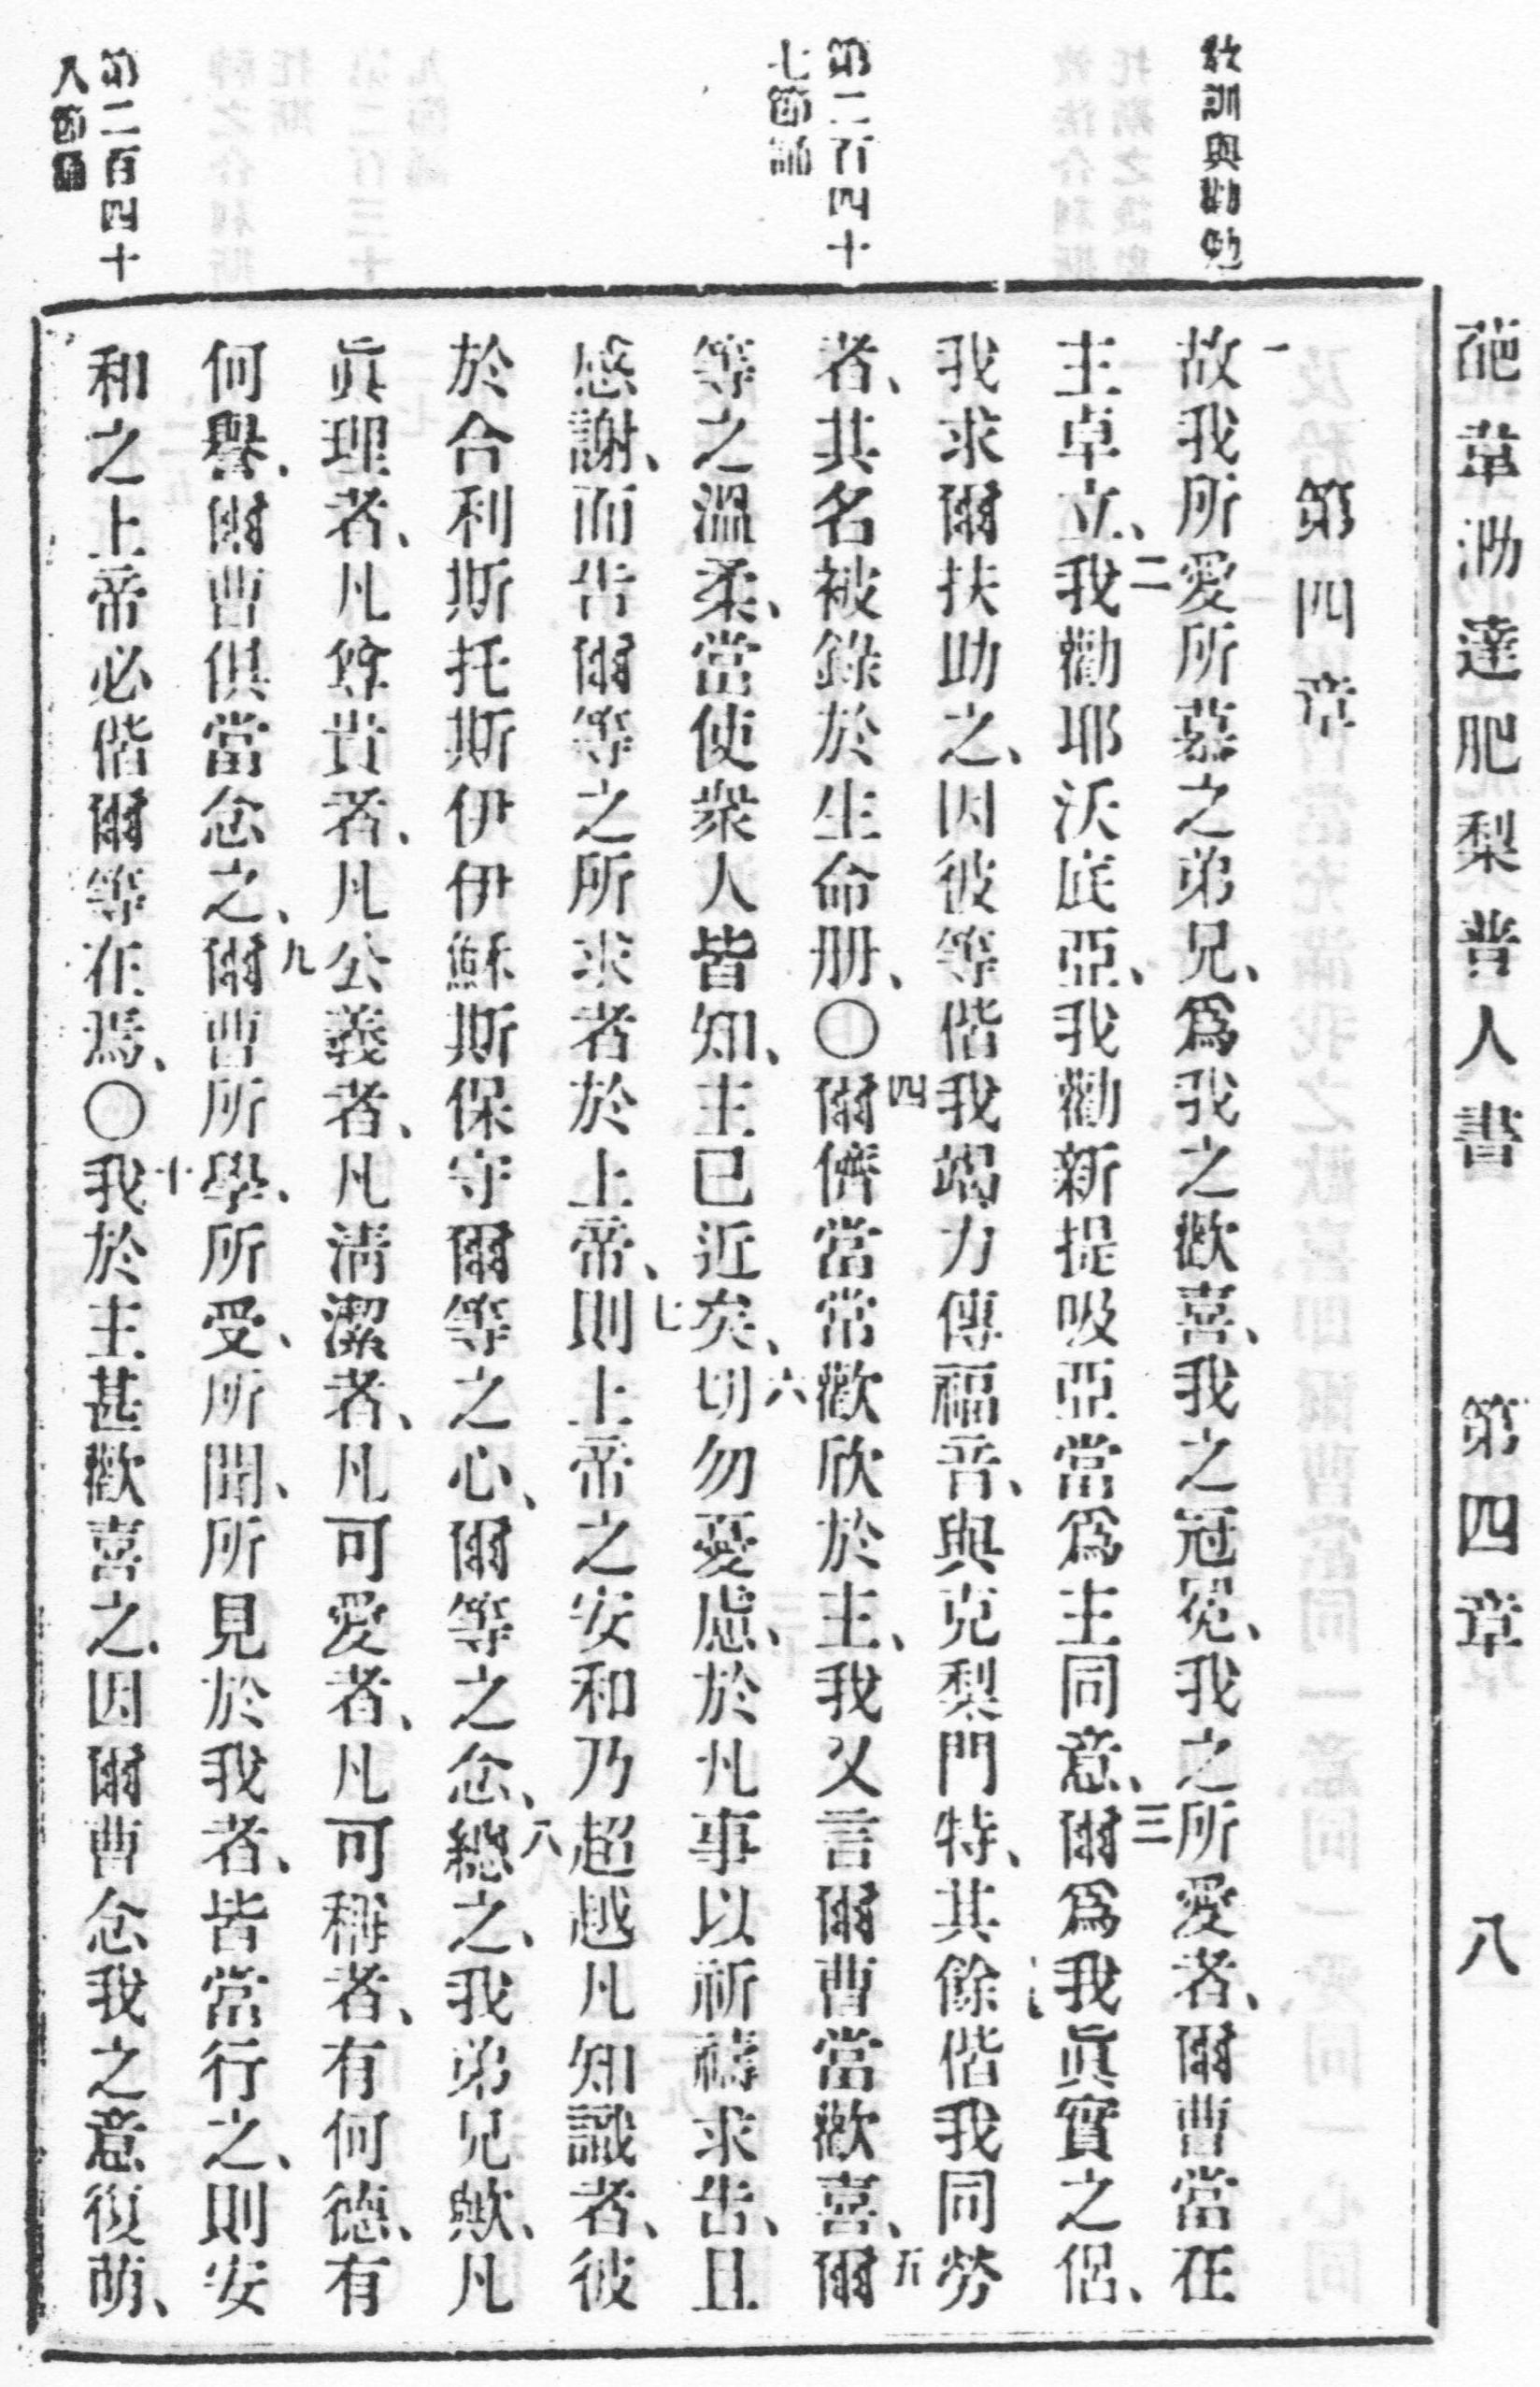 葩韋泐達肥梨普人書 第四章 八
教訓與勸勉
第二百四十
七節誦
第二百四十
八節誦
第四章
一故我所愛所慕之弟兄、爲我之歡喜、我之冠冕、我之所愛者、爾曹當在
主卓立、二我勸耶沃底亞、我勸新提吸亞當爲主同意、三爾爲我眞實之侶、
我求爾扶助之、因彼等偕我竭力傳福音、與克梨門特、其餘偕我同勞
者、其名被錄於生命册、〇四爾儕當常歡欣於主、我又言爾曹當歡喜、五爾
等之溫柔、當使衆人皆知、主已近矣、六切勿憂慮、於凡事以祈禱求告、且
感謝、而告爾等之所求者於上帝、七則上帝之安和乃超越凡知識者、彼
於合利斯托斯伊伊穌斯保守爾等之心、爾等之念、八總之、我弟兄歟、凡
眞理者、凡尊貴者、凡公義者、凡淸潔者、凡可愛者、凡可稱者、有何德、有
何譽、爾曹俱當念之、九爾曹所學、所受、所聞、所見於我者、皆當行之、則安
和之上帝必偕爾等在焉、〇十我於主甚歡喜之、因爾曹念我之意復萌、